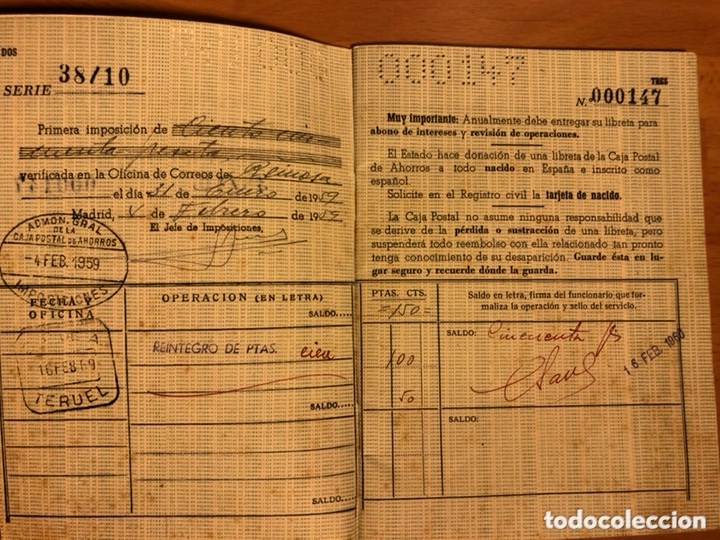 DOS
SERIE 38/10
Primera imposición de Ciento cin
cuenta pesetas
verificada en la Oficina de Correos de
el día 31 de Enero de 1959
Madrid, 4 de Febrero de 1959
El Jefe de Imposiciones,
ADMON. GRAL
DE LA
CAJA POSTAL DE AHORROS
-4 FEB. 1959
IMPOSICIONES
FECHA Y
OFICINA
OPERACION (EN LETRA)
SALDO.....
REINTEGRO DE PTAS. cien
16 FEB
TERUEL
SALDO.....
SALDO.....
000147
TRES
N.º 000147
Muy importante: Anualmente debe entregar su libreta para
abono de intereses y revisión de operaciones.
El Estado hace donación de una libreta de la Caja Postal
de Ahorros a todo nacido en España e inscrito como
español.
Solicite en el Registro civil la tarjeta de nacido.
La Caja Postal no asume ninguna responsabilidad que
se derive de la pérdida o sustracción de una libreta, pero
suspenderá todo reembolso con ella relacionado tan pronto
tenga conocimiento de su desaparición. Guarde ésta en lu-
gar seguro y recuerde dónde la guarda.
PTAS. CTS.
Saldo en letra, firma del funcionario que for-
maliza la operación y sello del servicio.
=150=
SALDO: Cincuenta pts
16 FEB. 1960
100
50
SALDO:
todocoleccion